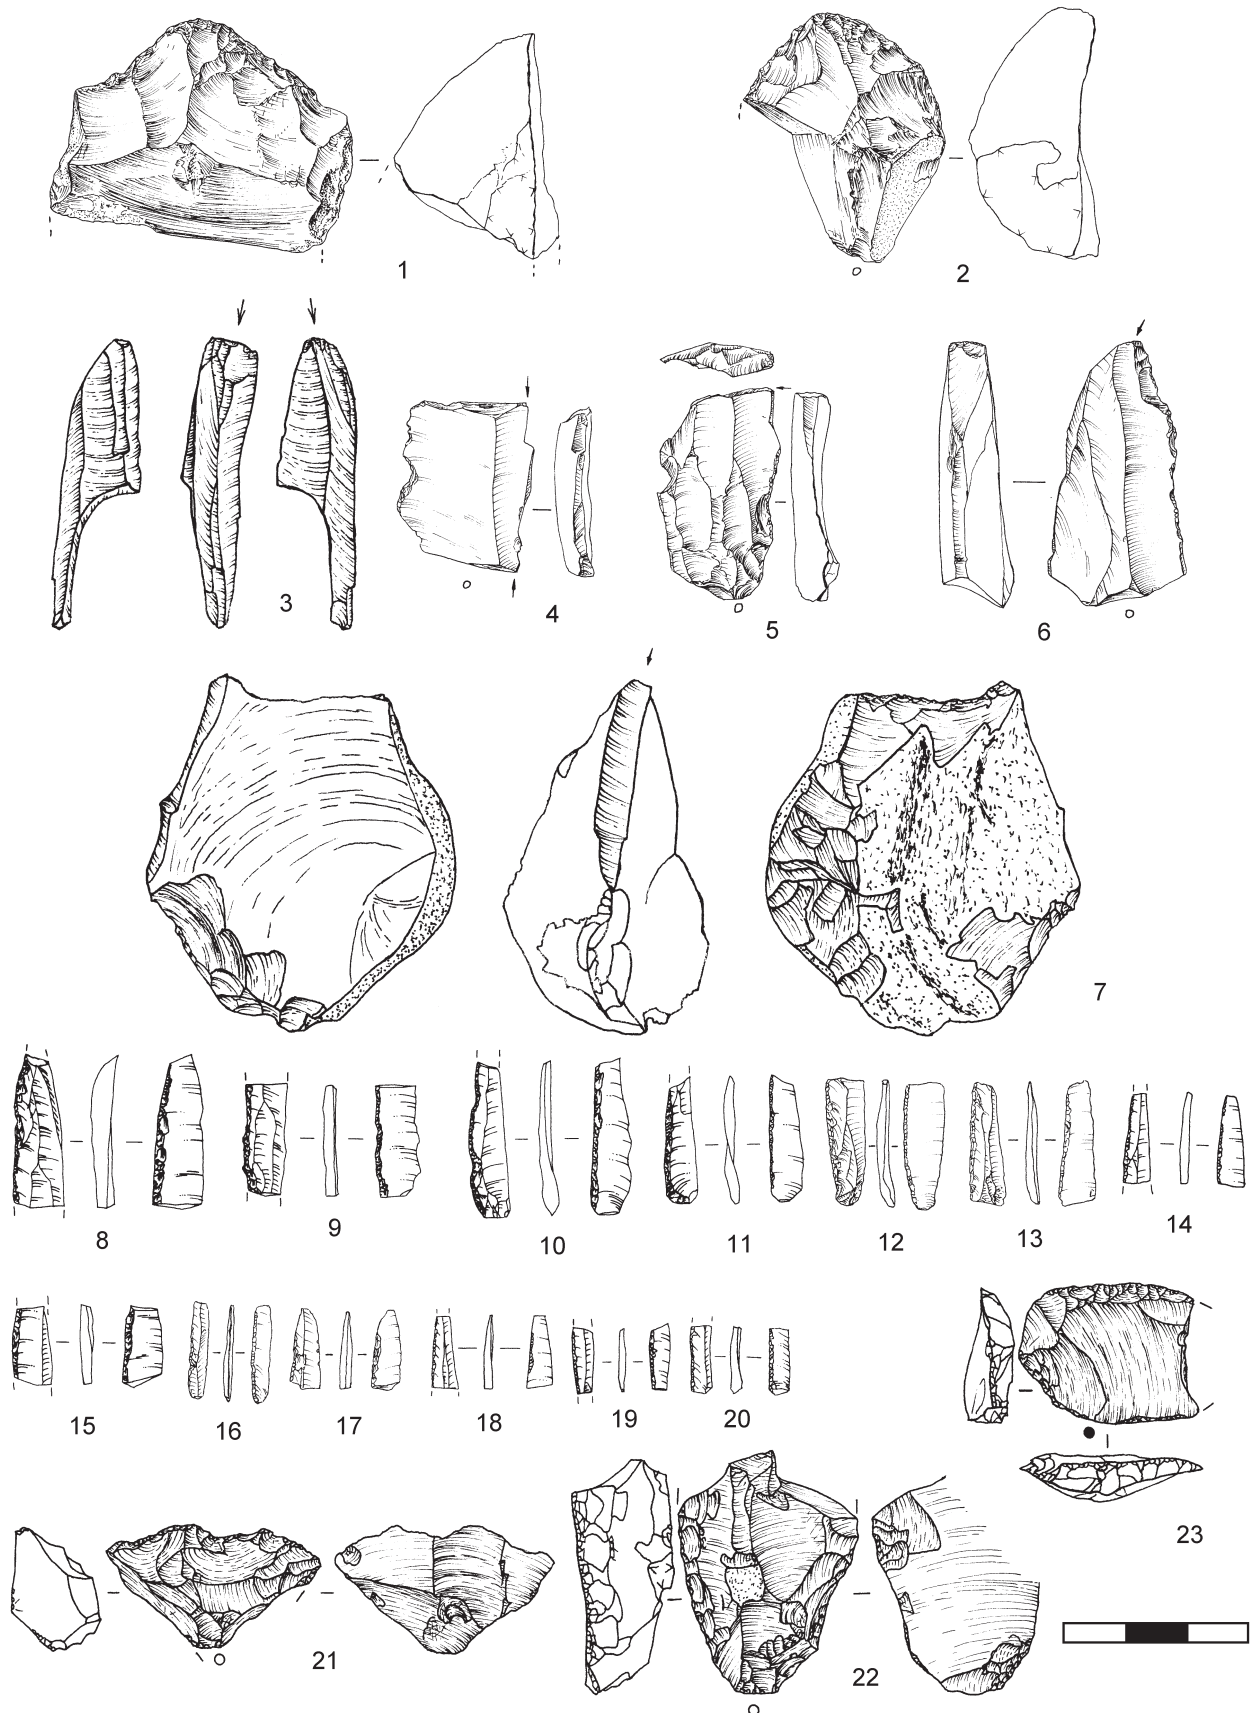 1 2
3 4 5 6
7
8 9 10 11 12 13 14
15 16 17 18 19 20
21 22 23